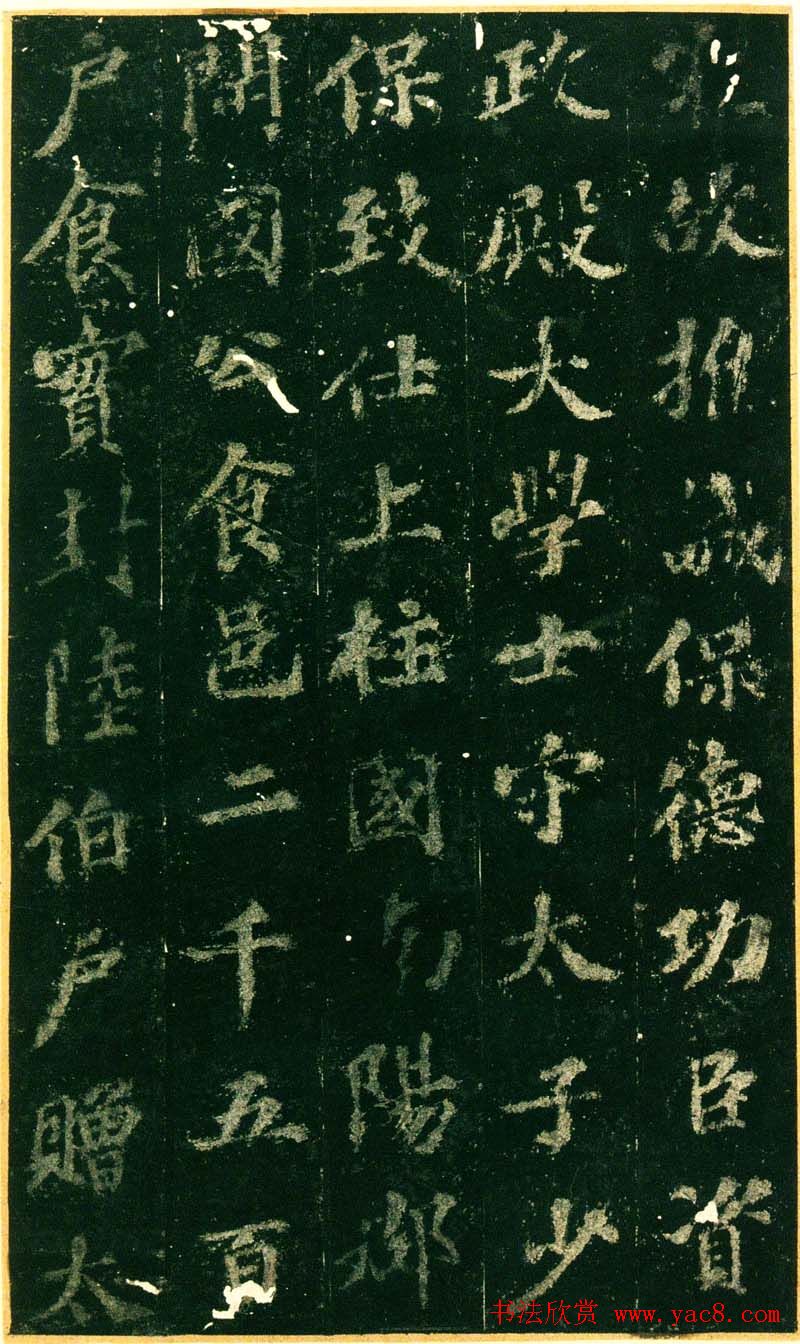 宋故推誠保德功臣資
政殿大學士守太子少
保致仕上柱國陽郡
開國公食邑二千五百
户食實封陸伯户贈太
书法欣赏 www.yac8.com